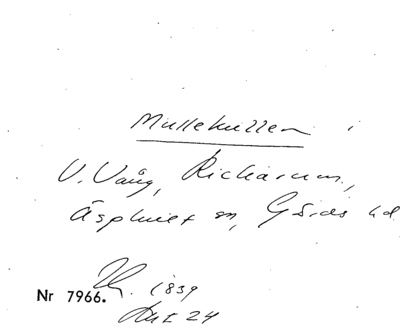 Mullekullen i
V. Vång, Rickarum,
Äsphult sn, Gärds hd
Nr 7966. 1839
24